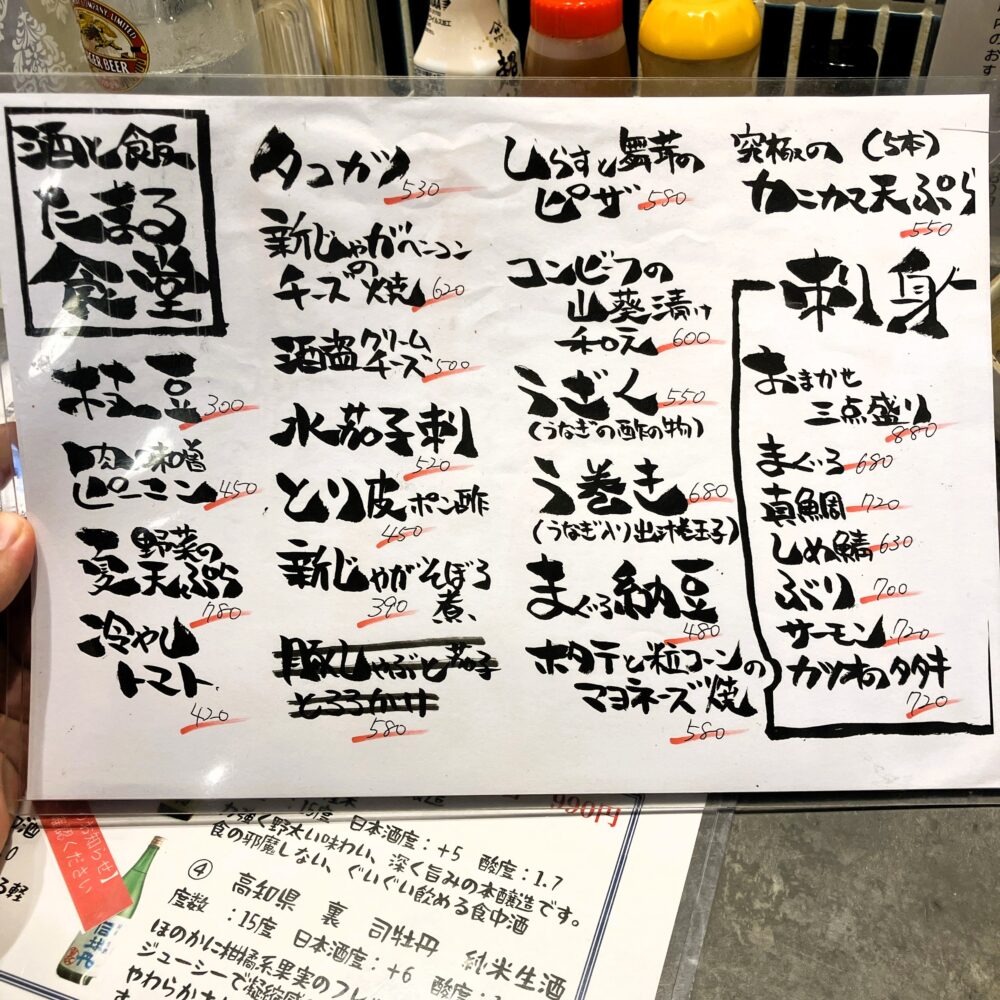 酒と飯
たまる
食堂
枝豆 300
肉味噌
ピーマン 450
夏野菜の
天ぷら
780
冷やし
トマト
420
タコガツ 530
新じゃがベーコン
の
チーズ焼 620
酒盗クリーム
チーズ 500
水茄子刺
520
とり皮ポン酢
450
新じゃがそぼろ
煮
390
豚しゃぶと茄子
とろろかけ
580
しらすと舞茸の
ピザ 580
コンビーフの
山葵漬け
和え 600
うざく 550
(うなぎの酢の物)
う巻き 680
(うなぎ入り出汁巻玉子)
まぐろ納豆
480
ホタテと粒コーンの
マヨネーズ焼
580
究極の (5本)
カニカマ天ぷら
550
刺身
おまかせ
三点盛り
880
まぐろ 680
真鯛 720
しめ鯖 630
ぶり 700
サーモン 720
カツオのタタキ
720
990円
:15度 日本酒度:+5 酸度:1.7
力強く野太い味わい、深く旨みの本醸造です。
食の邪魔しない、ぐいぐい飲める食中酒
④ 高知県 裏 司牡丹 純米生酒
度数 :15度 日本酒度:+6 酸度:
ほのかに柑橘系果実のフレ
ジューシーで凝縮感
やわらか
す